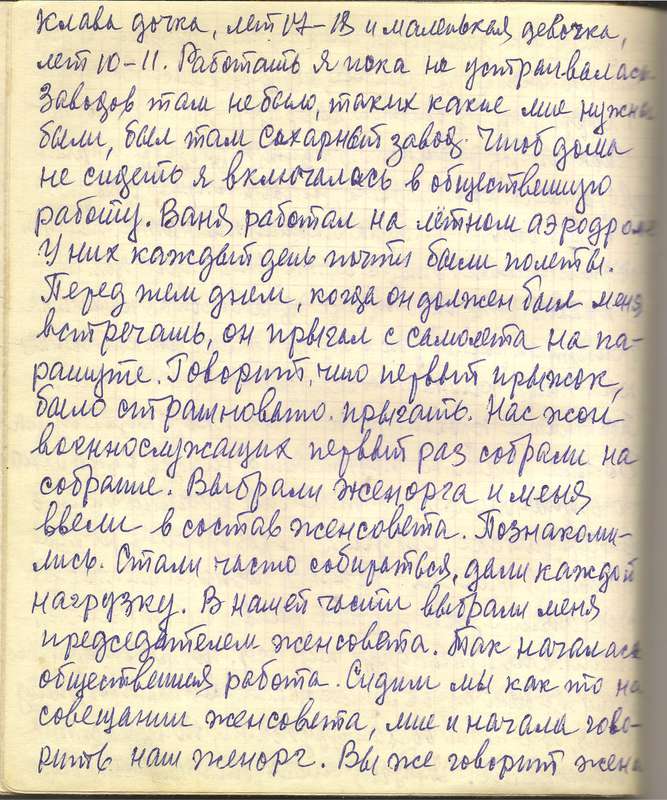 Клава дочка, лет 17-18 и маленькая девочка,
лет 10-11. Работать я пока не устраивалась
Заводов там не было, таких какие мне нужны
были, был там Сахарный завод. Чтоб дома
не сидеть я включалась в общественную
работу. Ваня работал на лётном аэродроме
У них каждый день почти были полеты.
Перед тем днем, когда он должен был меня
встречать, он прыгал с самолета на па-
рашуте. Говорит, что первый прыжок,
было страшновато прыгать. Нас жен
военнослужащих первый раз собрали на
собрание. Выбрали женорга и меня
ввели в состав женсовета. Познакоми-
лись. Стали часто собираться, дали каждой
нагрузку. В нашей части выбрали меня
председателем женсовета. Так началась
общественная работа. Сидим мы как то на
совещании женсовета, мне и начала гово-
рить наш женорг. Вы же говорит жена